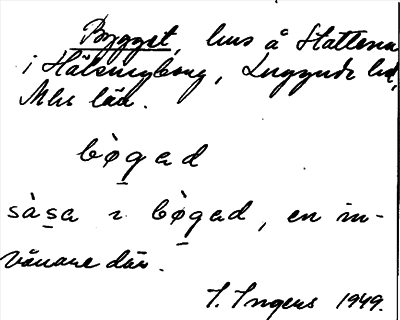 Bygget, hus å Slättern
i Hälsingborg, Luggude hd,
Mlhs län.
bø̀g̱ad
sàs̱a ɿ bø̀g̱ad, en in-
vånare där.
I. Ingers 1949.